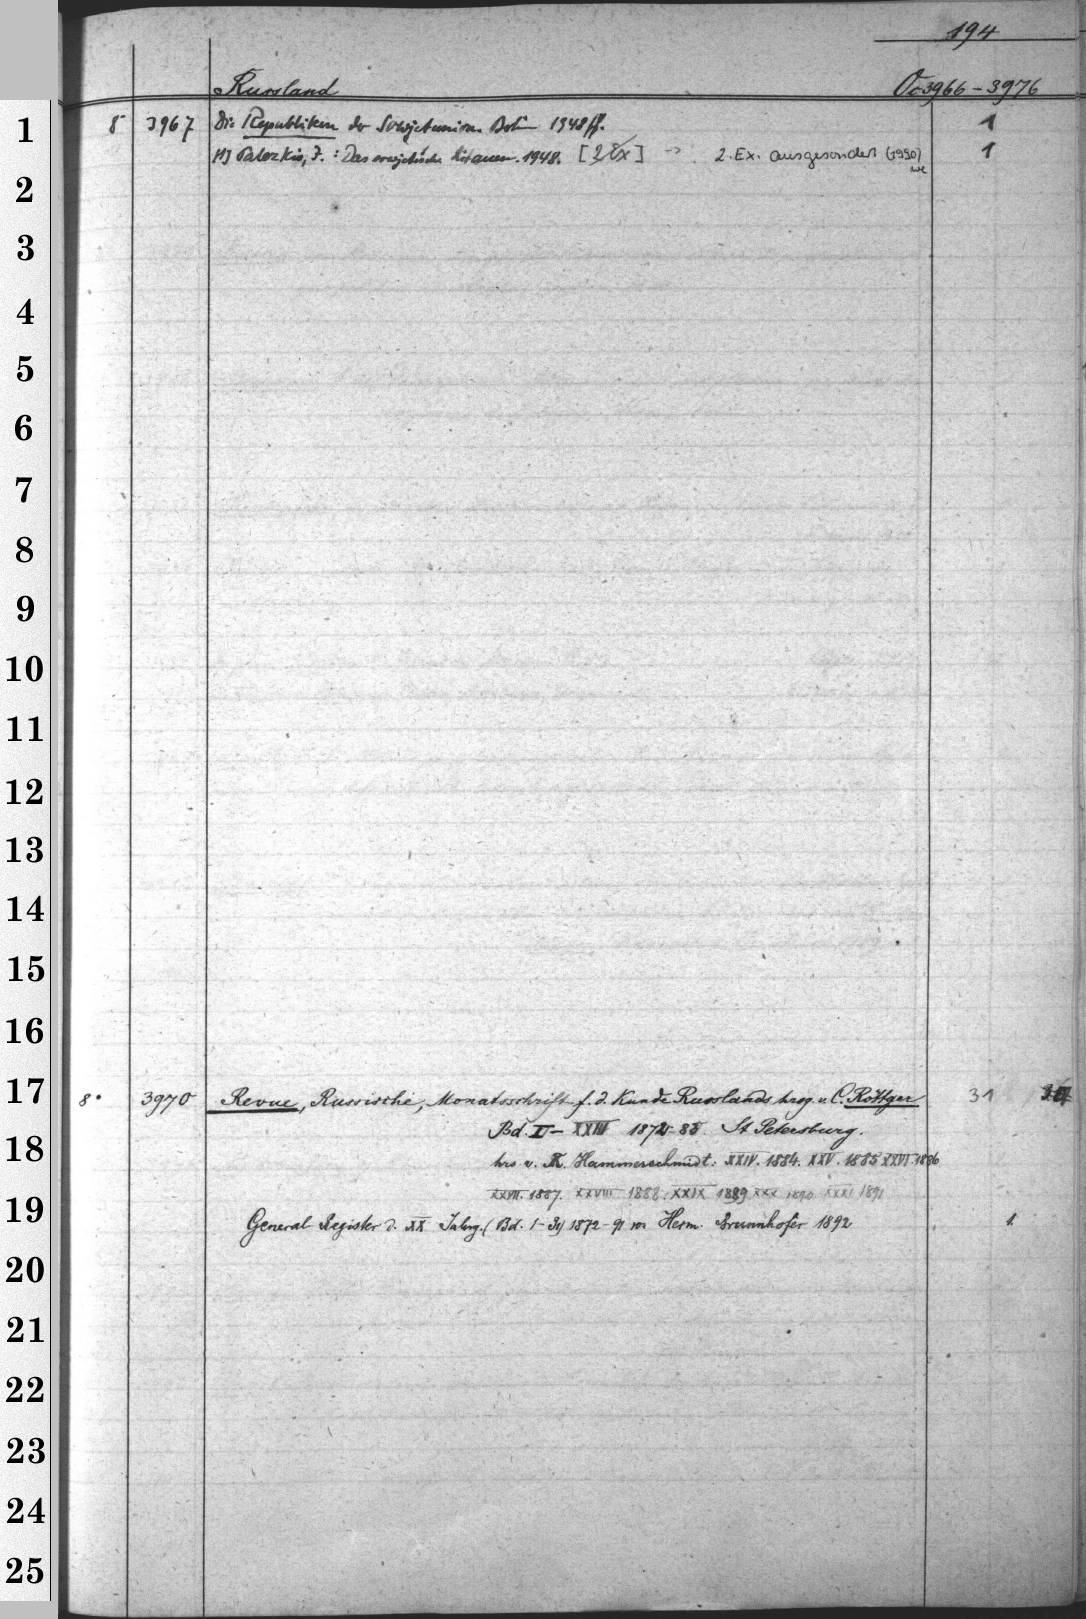 194
Russland Oc 3966-3976
1 8° 3967 Die Republiken der Sowjetunion. Berlin 1948 ff. 1
[1] Paleckis, J.: Das sowjetische Litauen. 1948. [2 Ex] -> 2. Ex. ausgesondert (1990) 1
2
3
4
5
6
7
8
9
10
11
12
13
14
15
16
17 8° 3970 Revue, Russische, Monatsschrift f. d. Kunde Russlands hrsg. v. C. Röttger 31
Bd. I- XXIII 1872-83. St Petersburg.
18 hrs v. R. Hammerschmidt: XXIV. 1884. XXV. 1885 XXVI 1886
XXVII. 1887. XXVIII 1888. XXIX 1889 XXX 1890 XXXI 1891
19 General Register d. XX Jahrg. (Bd. 1-31) 1872-91 von Herm. Brunnhofer 1892 1.
20
21
22
23
24
25